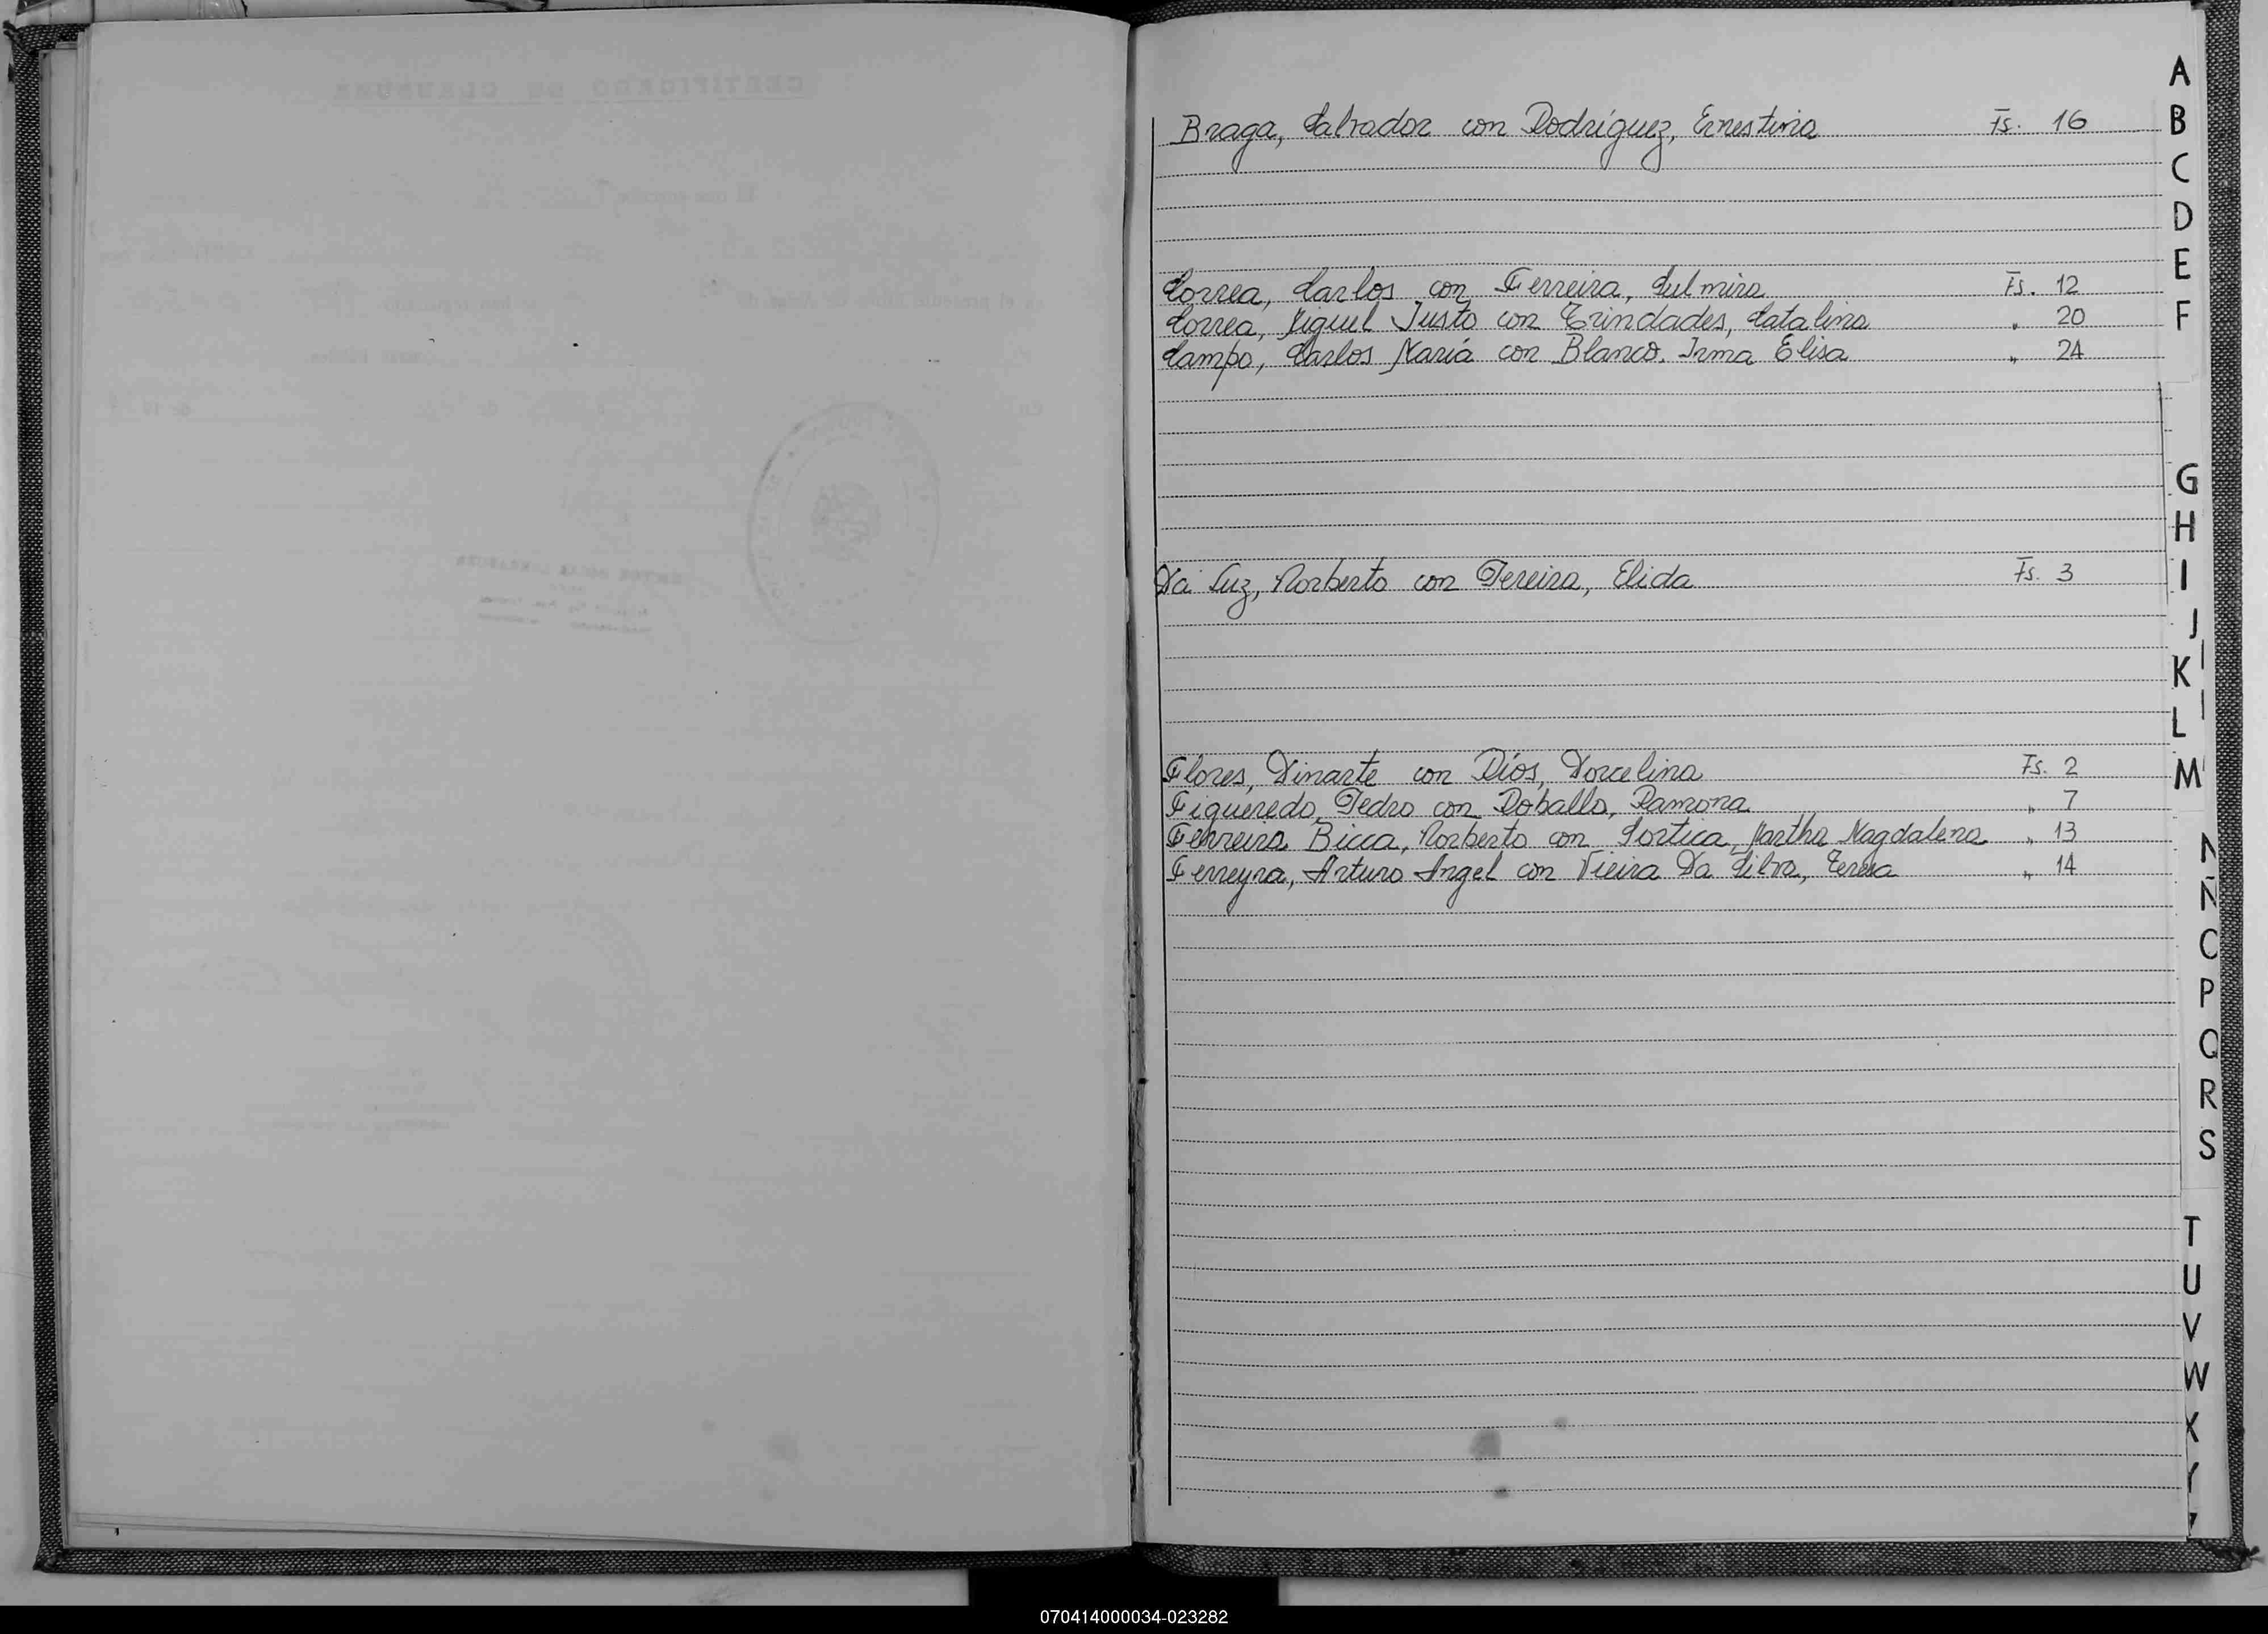 Braga, Salvador con Rodríguez, Ernestina Fs. 16
Correa, Carlos con Ferreira, Sulmira Fs. 12
Correa, Miguel Justo con Trindades, Catalina " 20
Campo, Carlos María con Blanco, Irma Elisa " 24
Da Luz, Norberto con Pereira, Elida Fs. 3
Flores, Dinarte con Ríos, Dorcelina Fs. 2
Figueredo, Pedro con Roballo, Ramona " 7
Ferreira Bicca, Norberto con Sortica, Martha Magdalena " 13
Ferreyra, Arturo Angel con Vieira Da Silva, Teresa " 14
A
B
C
D
E
F
G
H
I
J
K
L
M
N
Ñ
O
P
Q
R
S
T
U
V
W
X
Y
070414000034-023282